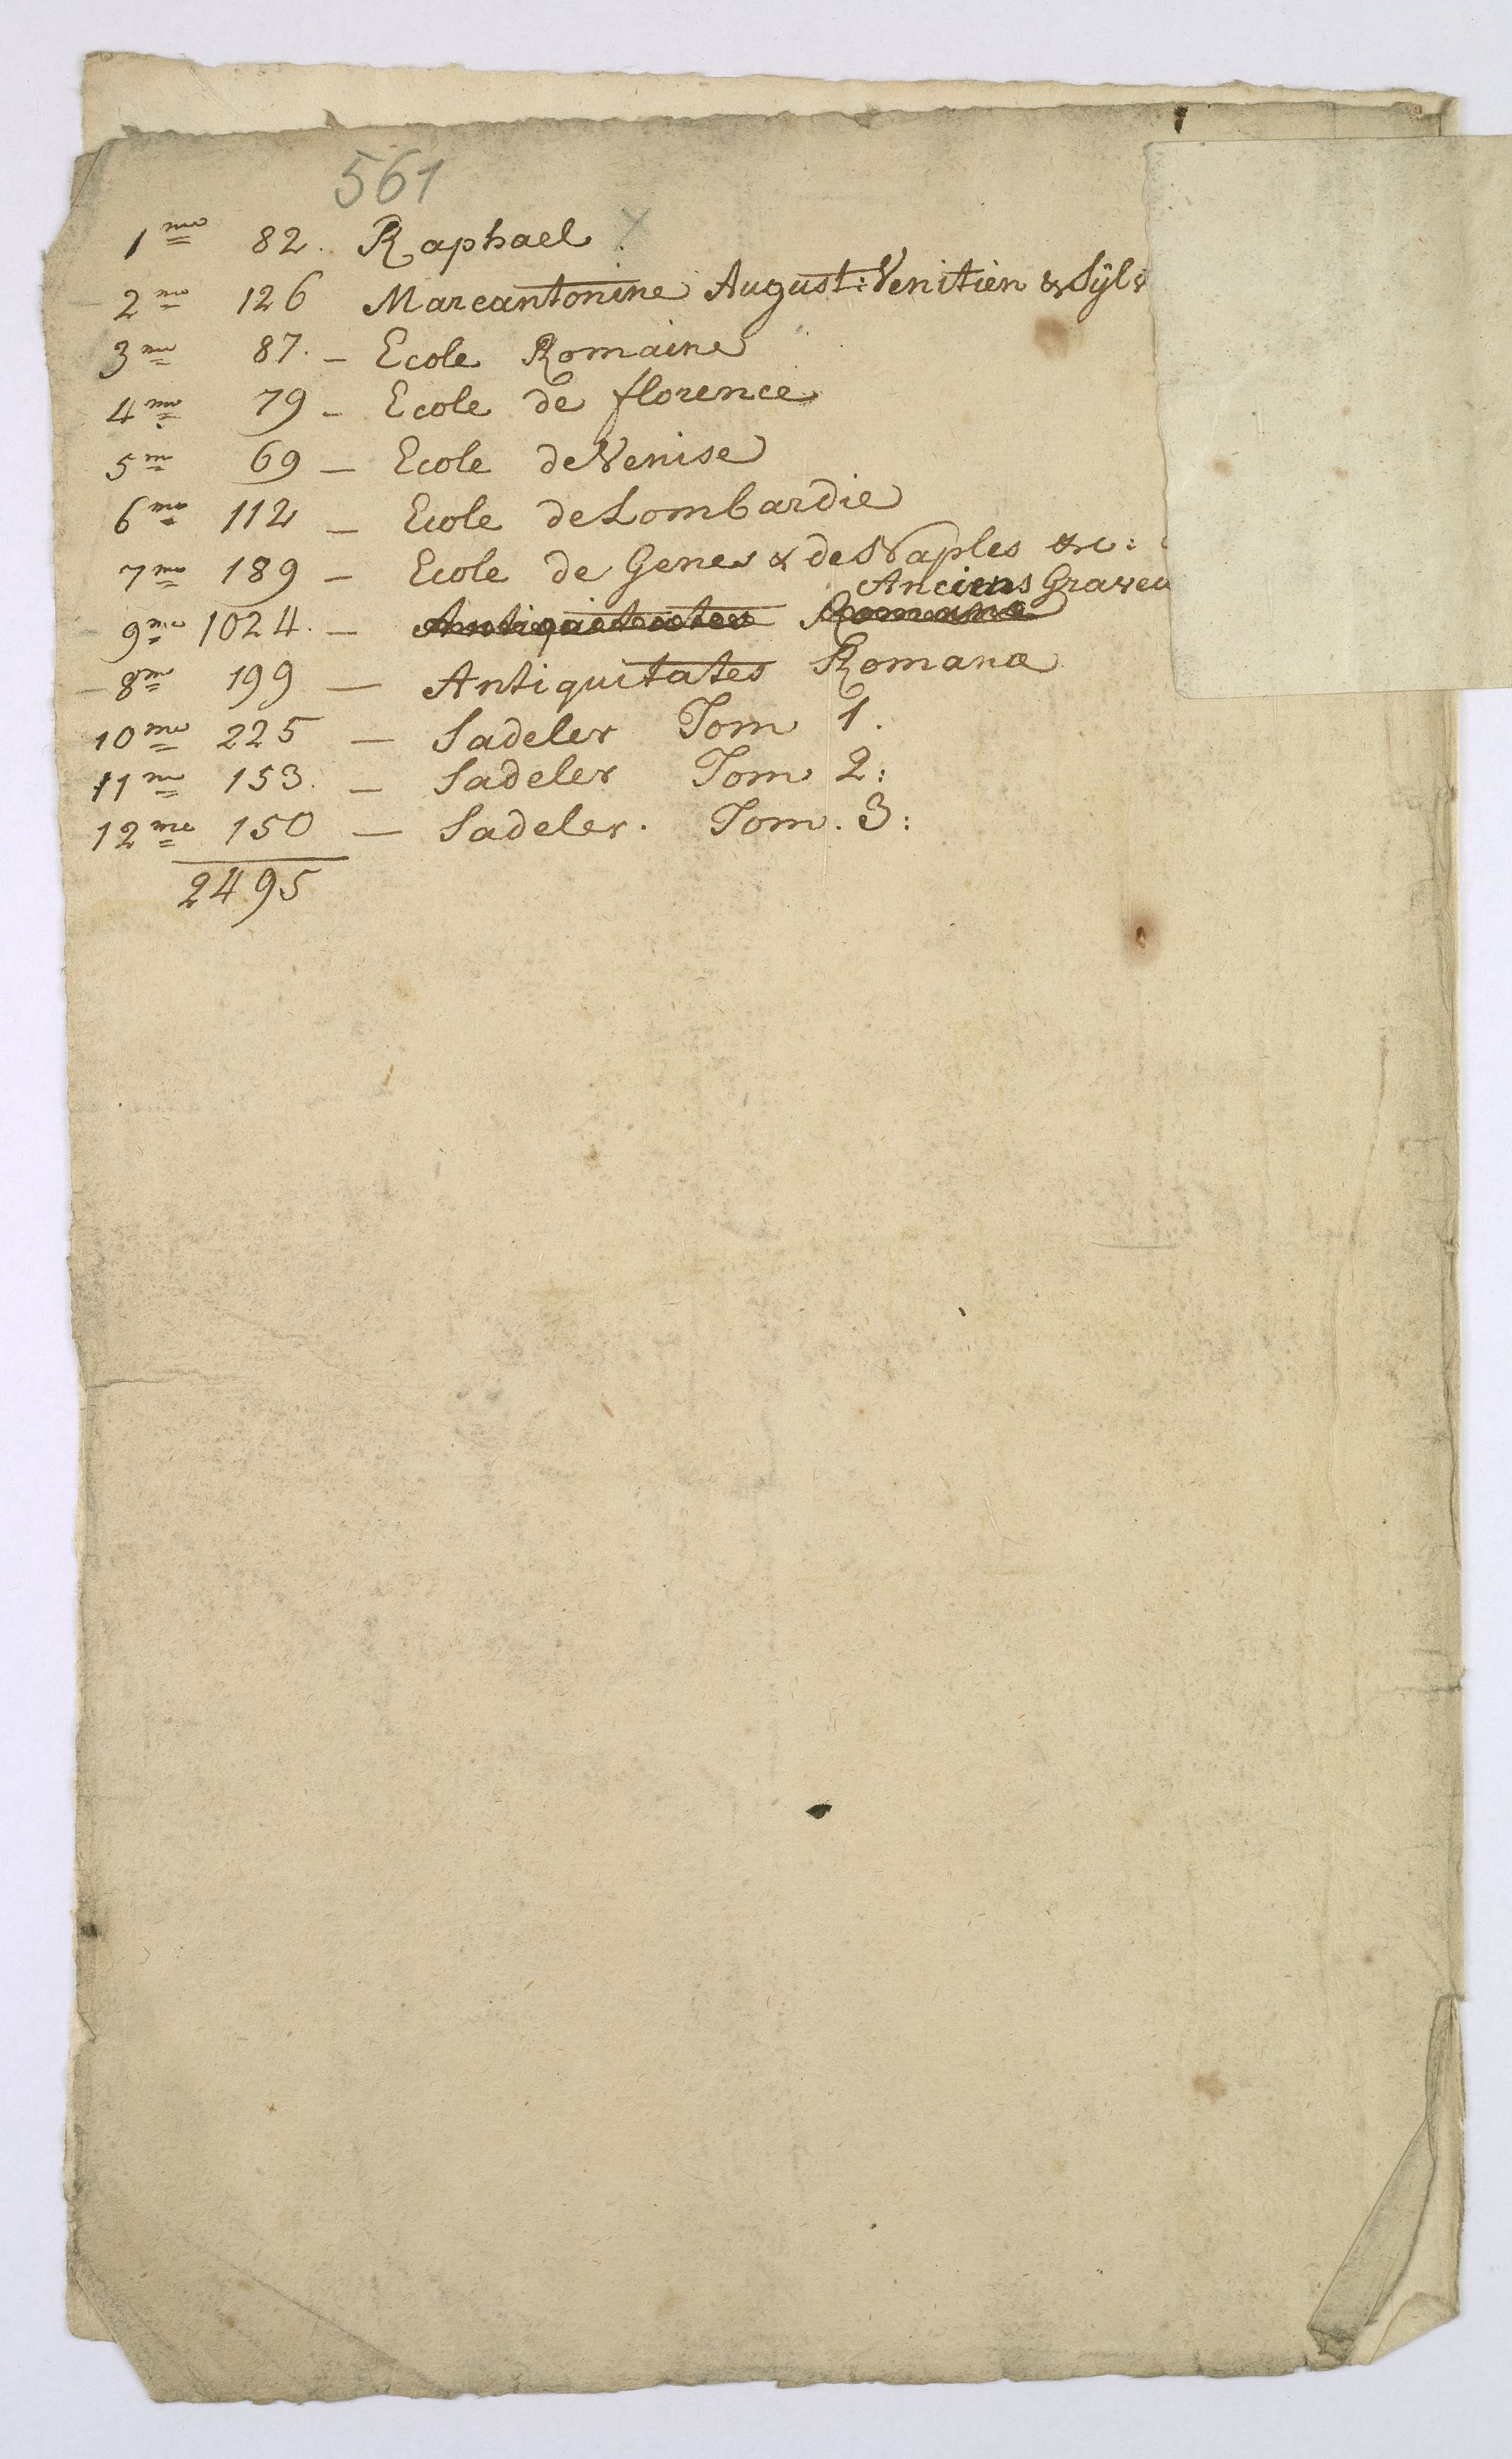 561
1me 82. Raphael. x
2me 126 Marcantonine August: Venitien & Sylv
3me 87. – Ecole Romaine
4me 79 – Ecole de florence
5me 69 – Ecole de Venise
6me 112 – Ecole de Lombardie
7me 189 – Ecole de Genes & de Naples &c:
Anciens Graveu
9me 1024. – Antiquitates Romanæ
8me 199 – Antiquitates Romanæ
10me 225 – Sadeler Tom 1.
11me 153. – Sadeler Tom 2:
12me 150 – Sadeler. Tom. 3:
2495